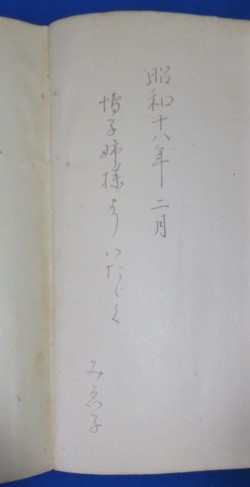 昭和十八年二月
博子姉様よりいたゞく
みゑ子